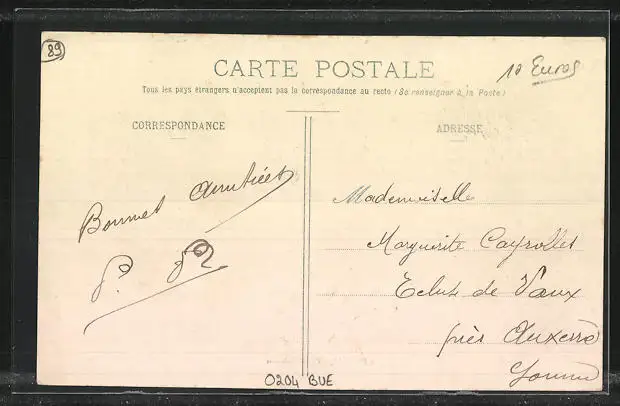 89
10 Euros
CARTE POSTALE
Tous les pays étrangers n'acceptent pas la correspondance au recto (Se renseigner à la Poste)
CORRESPONDANCE
ADRESSE
Bonnes Amitiées
P.
Mademoiselle
Marguerite Cayrolles
Ecluse de Vaux
près Auxerre
Yonne
0204 BUE